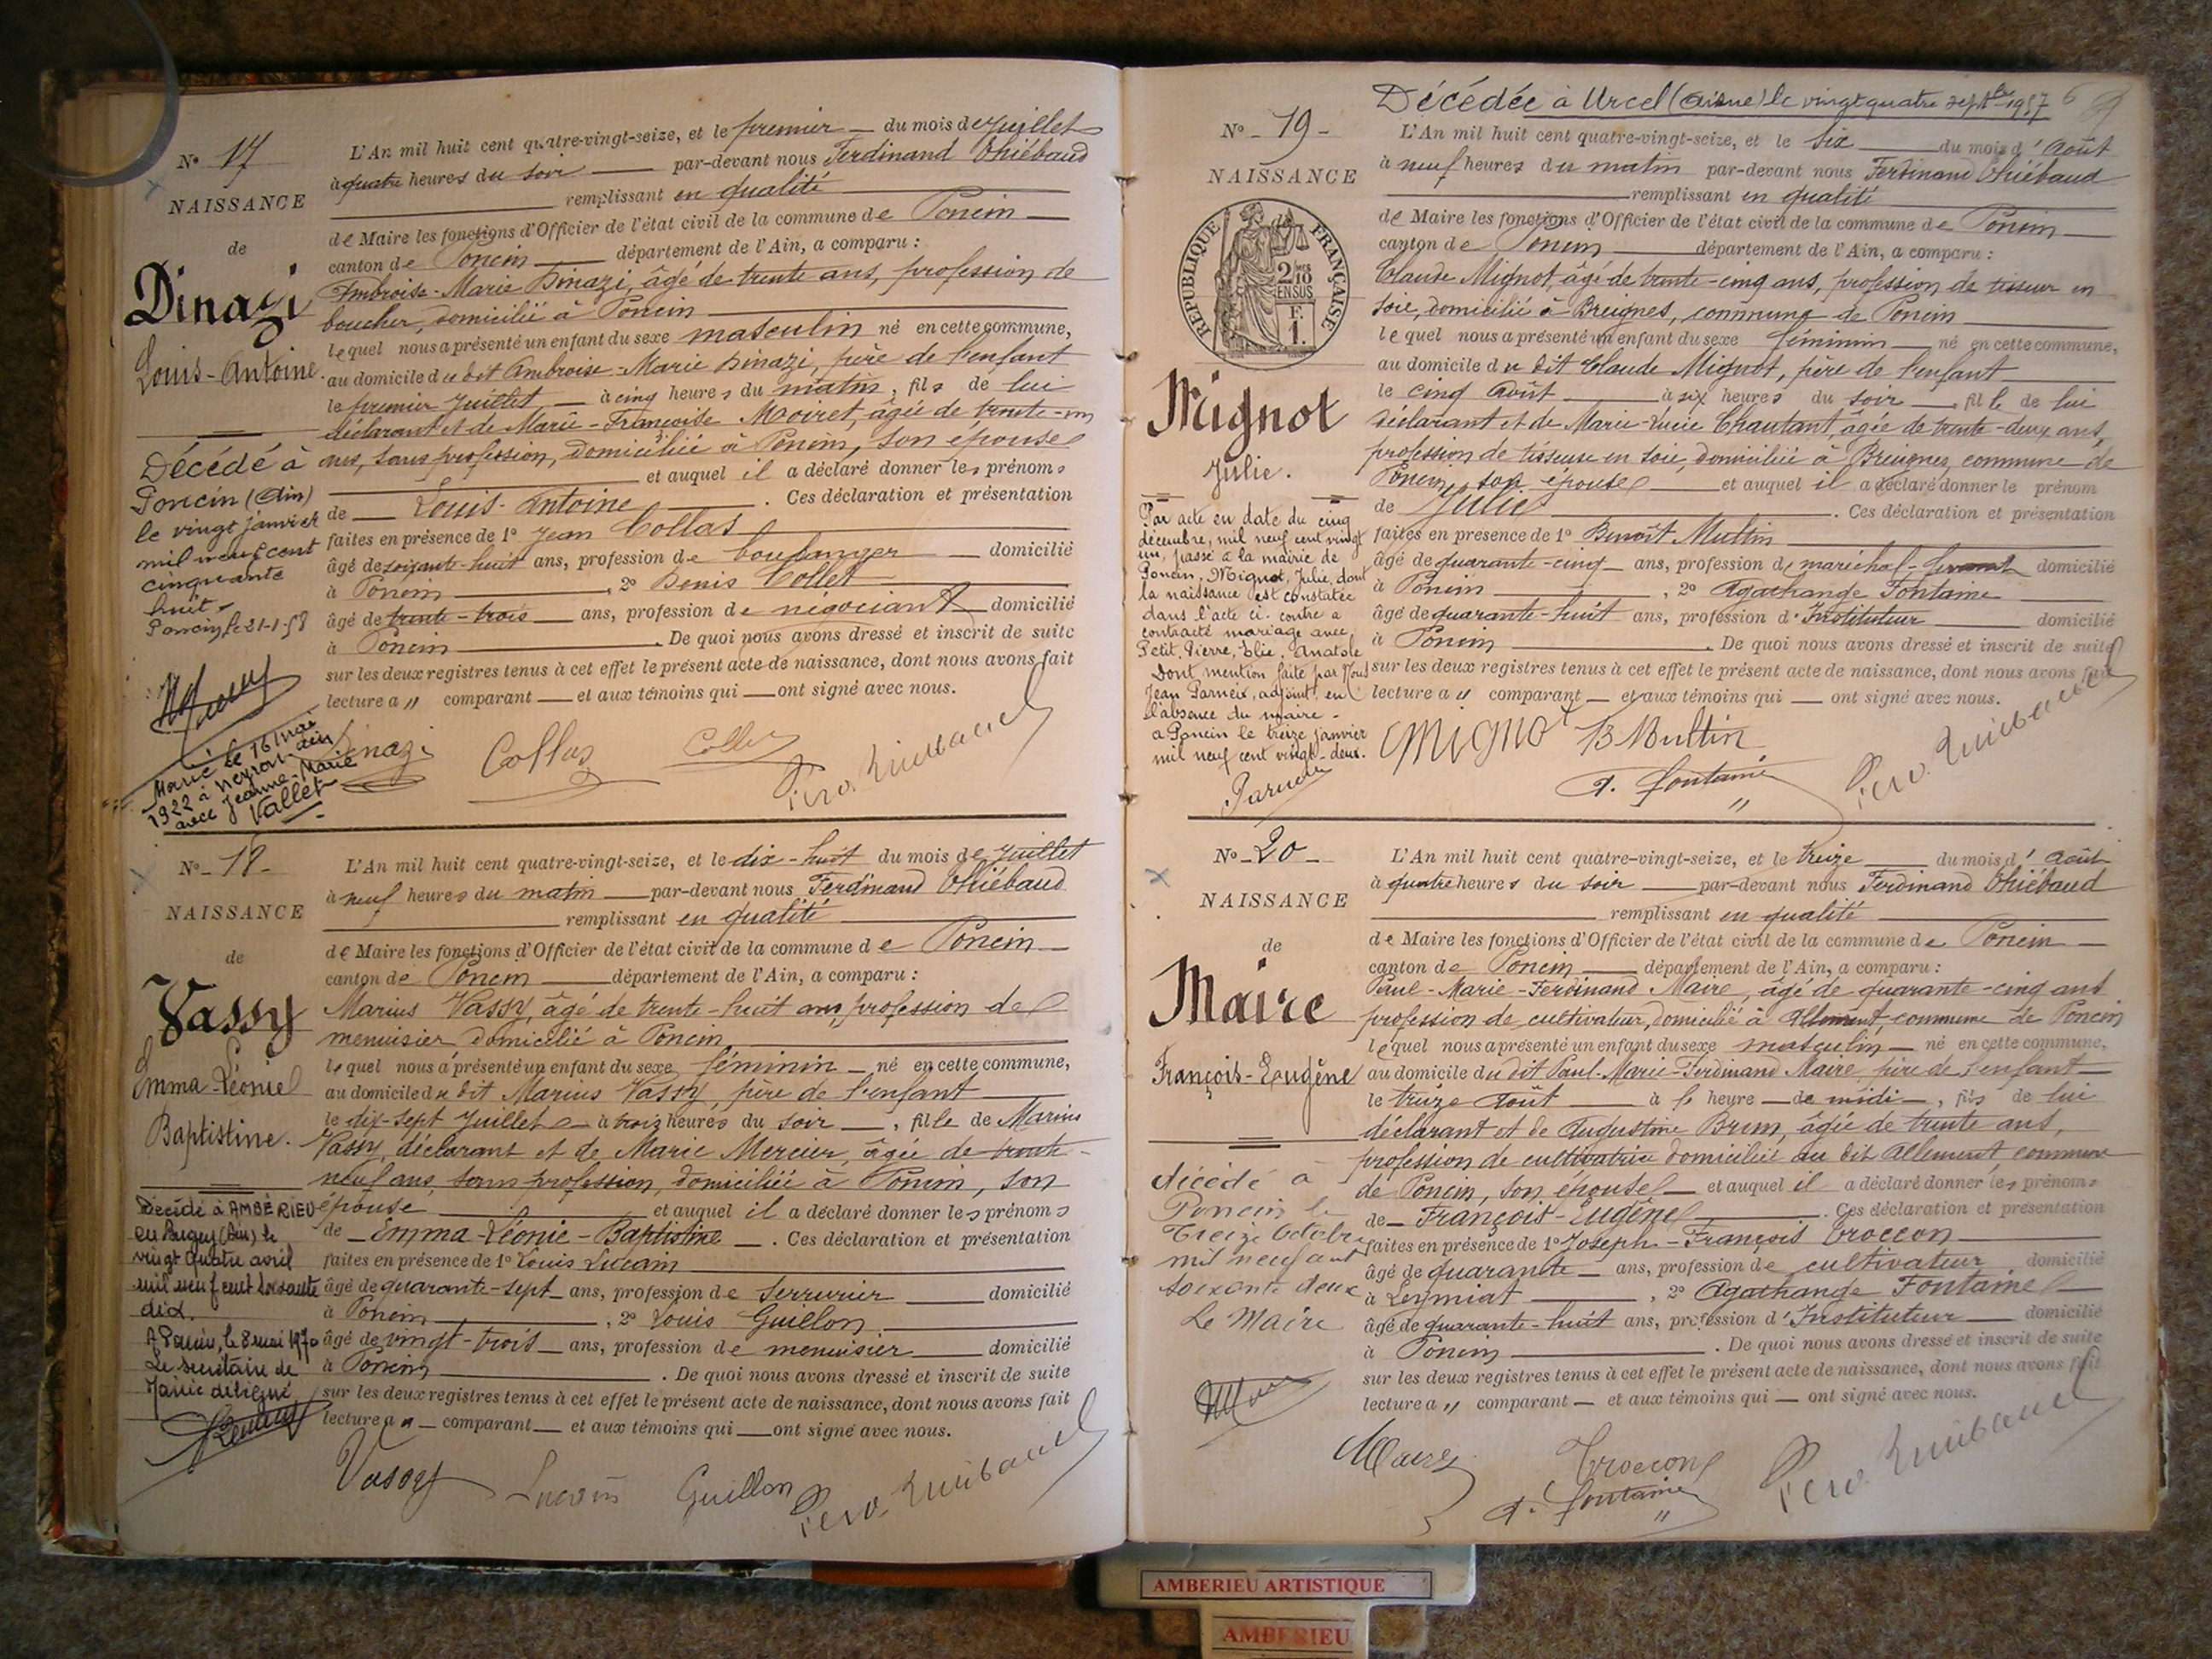 N° 17
NAISSANCE
de
Dinazi
Louis-Antoine
Décédé à
Poncin (Ain)
le vingt janvier
mil neuf cent
cinquante
huit
Poncin, le 21-1-58
Marié le 16 mai
1922 à Neyron Ain
avec Jeanne-Marie
Vallet
L'An mil huit cent quatre-vingt-seize, et le premier du mois de Juillet
à quatre heures du soir par-devant nous Ferdinand Thiébaud
remplissant en qualité
de Maire les fonctions d'Officier de l'état civil de la commune de Poncin
canton de Poncin département de l'Ain, a comparu :
Ambroise-Marie Dinazi, âgé de trente ans, profession de
boucher, domicilié à Poncin
lequel nous a présenté un enfant du sexe masculin né en cette commune,
au domicile du dit Ambroise-Marie Dinazi, père de l'enfant
le premier Juillet à cinq heures du matin, fils de lui
déclarant et de Marie-Françoise Moiret, âgée de trente-un
ans, sans profession, domiciliée à Poncin, son épouse
et auquel il a déclaré donner les prénoms
de Louis-Antoine. Ces déclaration et présentation
faites en présence de 1° Jean Collas
âgé de soixante-huit ans, profession de boulanger domicilié
à Poncin, 2° Denis Collet
âgé de trente-trois ans, profession de négociant domicilié
à Poncin. De quoi nous avons dressé et inscrit de suite
sur les deux registres tenus à cet effet le présent acte de naissance, dont nous avons fait
lecture a " comparant et aux témoins qui ont signé avec nous.
Dinazi Collas Collet Ferd. Thiébaud
N° 18
NAISSANCE
de
Vassy
Emma-Léonie
Baptistine.
Décédé à AMBÉRIEU
en Bugey (Ain) le
vingt quatre avril
mil neuf cent soixante
dix.
A Poncin, le 8 mai 1970
Le secrétaire de
Mairie délégué
L'An mil huit cent quatre-vingt-seize, et le dix-huit du mois de Juillet
à neuf heures du matin par-devant nous Ferdinand Thiébaud
remplissant en qualité
de Maire les fonctions d'Officier de l'état civil de la commune de Poncin
canton de Poncin département de l'Ain, a comparu :
Marius Vassy, âgé de trente-huit ans, profession de
menuisier domicilié à Poncin
lequel nous a présenté un enfant du sexe féminin né en cette commune,
au domicile du dit Marius Vassy, père de l'enfant
le dix-sept Juillet à trois heures du soir, fille de Marius
Vassy, déclarant et de Marie Mercier, âgée de trente-
neuf ans, sans profession, domiciliée à Poncin, son
épouse et auquel il a déclaré donner les prénoms
de Emma-Léonie-Baptistine. Ces déclaration et présentation
faites en présence de 1° Louis Lucain
âgé de quarante-sept ans, profession de Serrurier domicilié
à Poncin, 2° Louis Guillon
âgé de vingt-trois ans, profession de menuisier domicilié
à Poncin. De quoi nous avons dressé et inscrit de suite
sur les deux registres tenus à cet effet le présent acte de naissance, dont nous avons fait
lecture a " comparant et aux témoins qui ont signé avec nous.
Vassy Lucain Guillon Ferd. Thiébaud
Décédée à Urcel (Aisne) le vingt quatre septbre 1957
N° 19
NAISSANCE
RÉPUBLIQUE FRANÇAISE
2/10 EN SUS
1 F.
Mignot
Julie.
Par acte en date du cinq
décembre, mil neuf cent vingt
un, passé à la mairie de
Poncin, Mignot, Julie, dont
la naissance est constatée
dans l'acte ci-contre a
contracté mariage avec
Petit, Pierre, Elie, Anatole
Dont mention faite par Nous
Jean Parneix, adjoint, en
l'absence du maire
a Poncin le treize janvier
mil neuf cent vingt-deux.
Parneix
L'An mil huit cent quatre-vingt-seize, et le six du mois d'Août
à neuf heures du matin par-devant nous Ferdinand Thiébaud
remplissant en qualité
de Maire les fonctions d'Officier de l'état civil de la commune de Poncin
canton de Poncin département de l'Ain, a comparu :
Claude Mignot, âgé de trente-cinq ans, profession de tisseur en
soie, domicilié à Breignes, commune de Poncin
lequel nous a présenté un enfant du sexe féminin né en cette commune,
au domicile du dit Claude Mignot, père de l'enfant
le cinq Août à six heures du soir, fille de lui
déclarant et de Marie-Lucie Chautant, âgée de trente-deux ans,
profession de tisseuse en soie, domiciliée à Breignes, commune de
Poncin, son épouse et auquel il a déclaré donner le prénom
de Julie. Ces déclaration et présentation
faites en présence de 1° Benoît Multin
âgé de quarante-cinq ans, profession de maréchal-ferrant domicilié
à Poncin, 2° Agathange Fontaine
âgé de quarante-huit ans, profession d'Instituteur domicilié
à Poncin. De quoi nous avons dressé et inscrit de suite
sur les deux registres tenus à cet effet le présent acte de naissance, dont nous avons fait
lecture a " comparant et aux témoins qui ont signé avec nous.
C Mignot B Multin
A. Fontaine Ferd. Thiébaud
N° 20
NAISSANCE
de
Maire
François-Eugène
décédé à
Poncin le
treize Octobre
mil neuf cent
soixante deux
Le Maire
L'An mil huit cent quatre-vingt-seize, et le treize du mois d'Août
à quatre heures du soir par-devant nous Ferdinand Thiébaud
remplissant en qualité
de Maire les fonctions d'Officier de l'état civil de la commune de Poncin
canton de Poncin département de l'Ain, a comparu :
Paul-Marie-Ferdinand Maire, âgé de quarante-cinq ans
profession de cultivateur, domicilié à Allement, commune de Poncin
lequel nous a présenté un enfant du sexe masculin né en cette commune,
au domicile du dit Paul-Marie-Ferdinand Maire, père de l'enfant
le treize Août à heure de midi, fils de lui
déclarant et de Augustine Brun, âgée de trente ans,
profession de cultivatrice domiciliée au dit Allement, commune
de Poncin, son épouse et auquel il a déclaré donner les prénoms
de François-Eugène. Ces déclaration et présentation
faites en présence de 1° Joseph-François Croccon
âgé de quarante ans, profession de cultivateur domicilié
à Leymiat, 2° Agathange Fontaine
âgé de quarante-huit ans, profession d'Instituteur domicilié
à Poncin. De quoi nous avons dressé et inscrit de suite
sur les deux registres tenus à cet effet le présent acte de naissance, dont nous avons fait
lecture a " comparant et aux témoins qui ont signé avec nous.
Maire Croccon
A. Fontaine Ferd. Thiébaud
AMBERIEU ARTISTIQUE
AMBERIEU